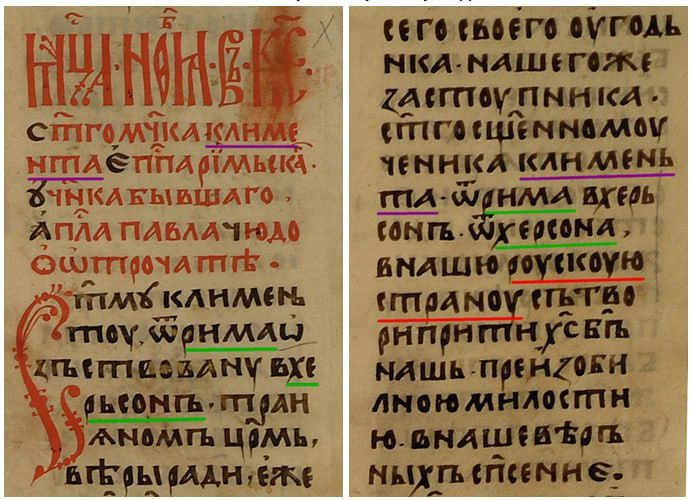 мⷭ҇ца · ноіа · въ · к҃е ·
ст҃го мч҃ка климе
нта єп҃па рїмьска ·
ꙋчн҃ка бывшаго ·
ап҃ла павла чюдо
ѿ ѡтрочати ·
Ст҃мꙋ климень
тоу, ѿ рима ѡ
ꙁъствованꙋ в хе
рьсонъ · тран
ꙗномъ цр҃мь,
вѣры ради, еже
сего своего оугодь
ника · нашего же
ꙁастоупника ·
ст҃го сщ҃енномоу
ченика клименьта · ѿ рима в херь
сонъ · ѿ херсона,
в нашю роускоую
страноу сътво
ри прити хс҃ бг҃ъ
нашь · преиꙁоби
лною милости
ю · в наше вѣръ
ныхъ сп҃сение ·